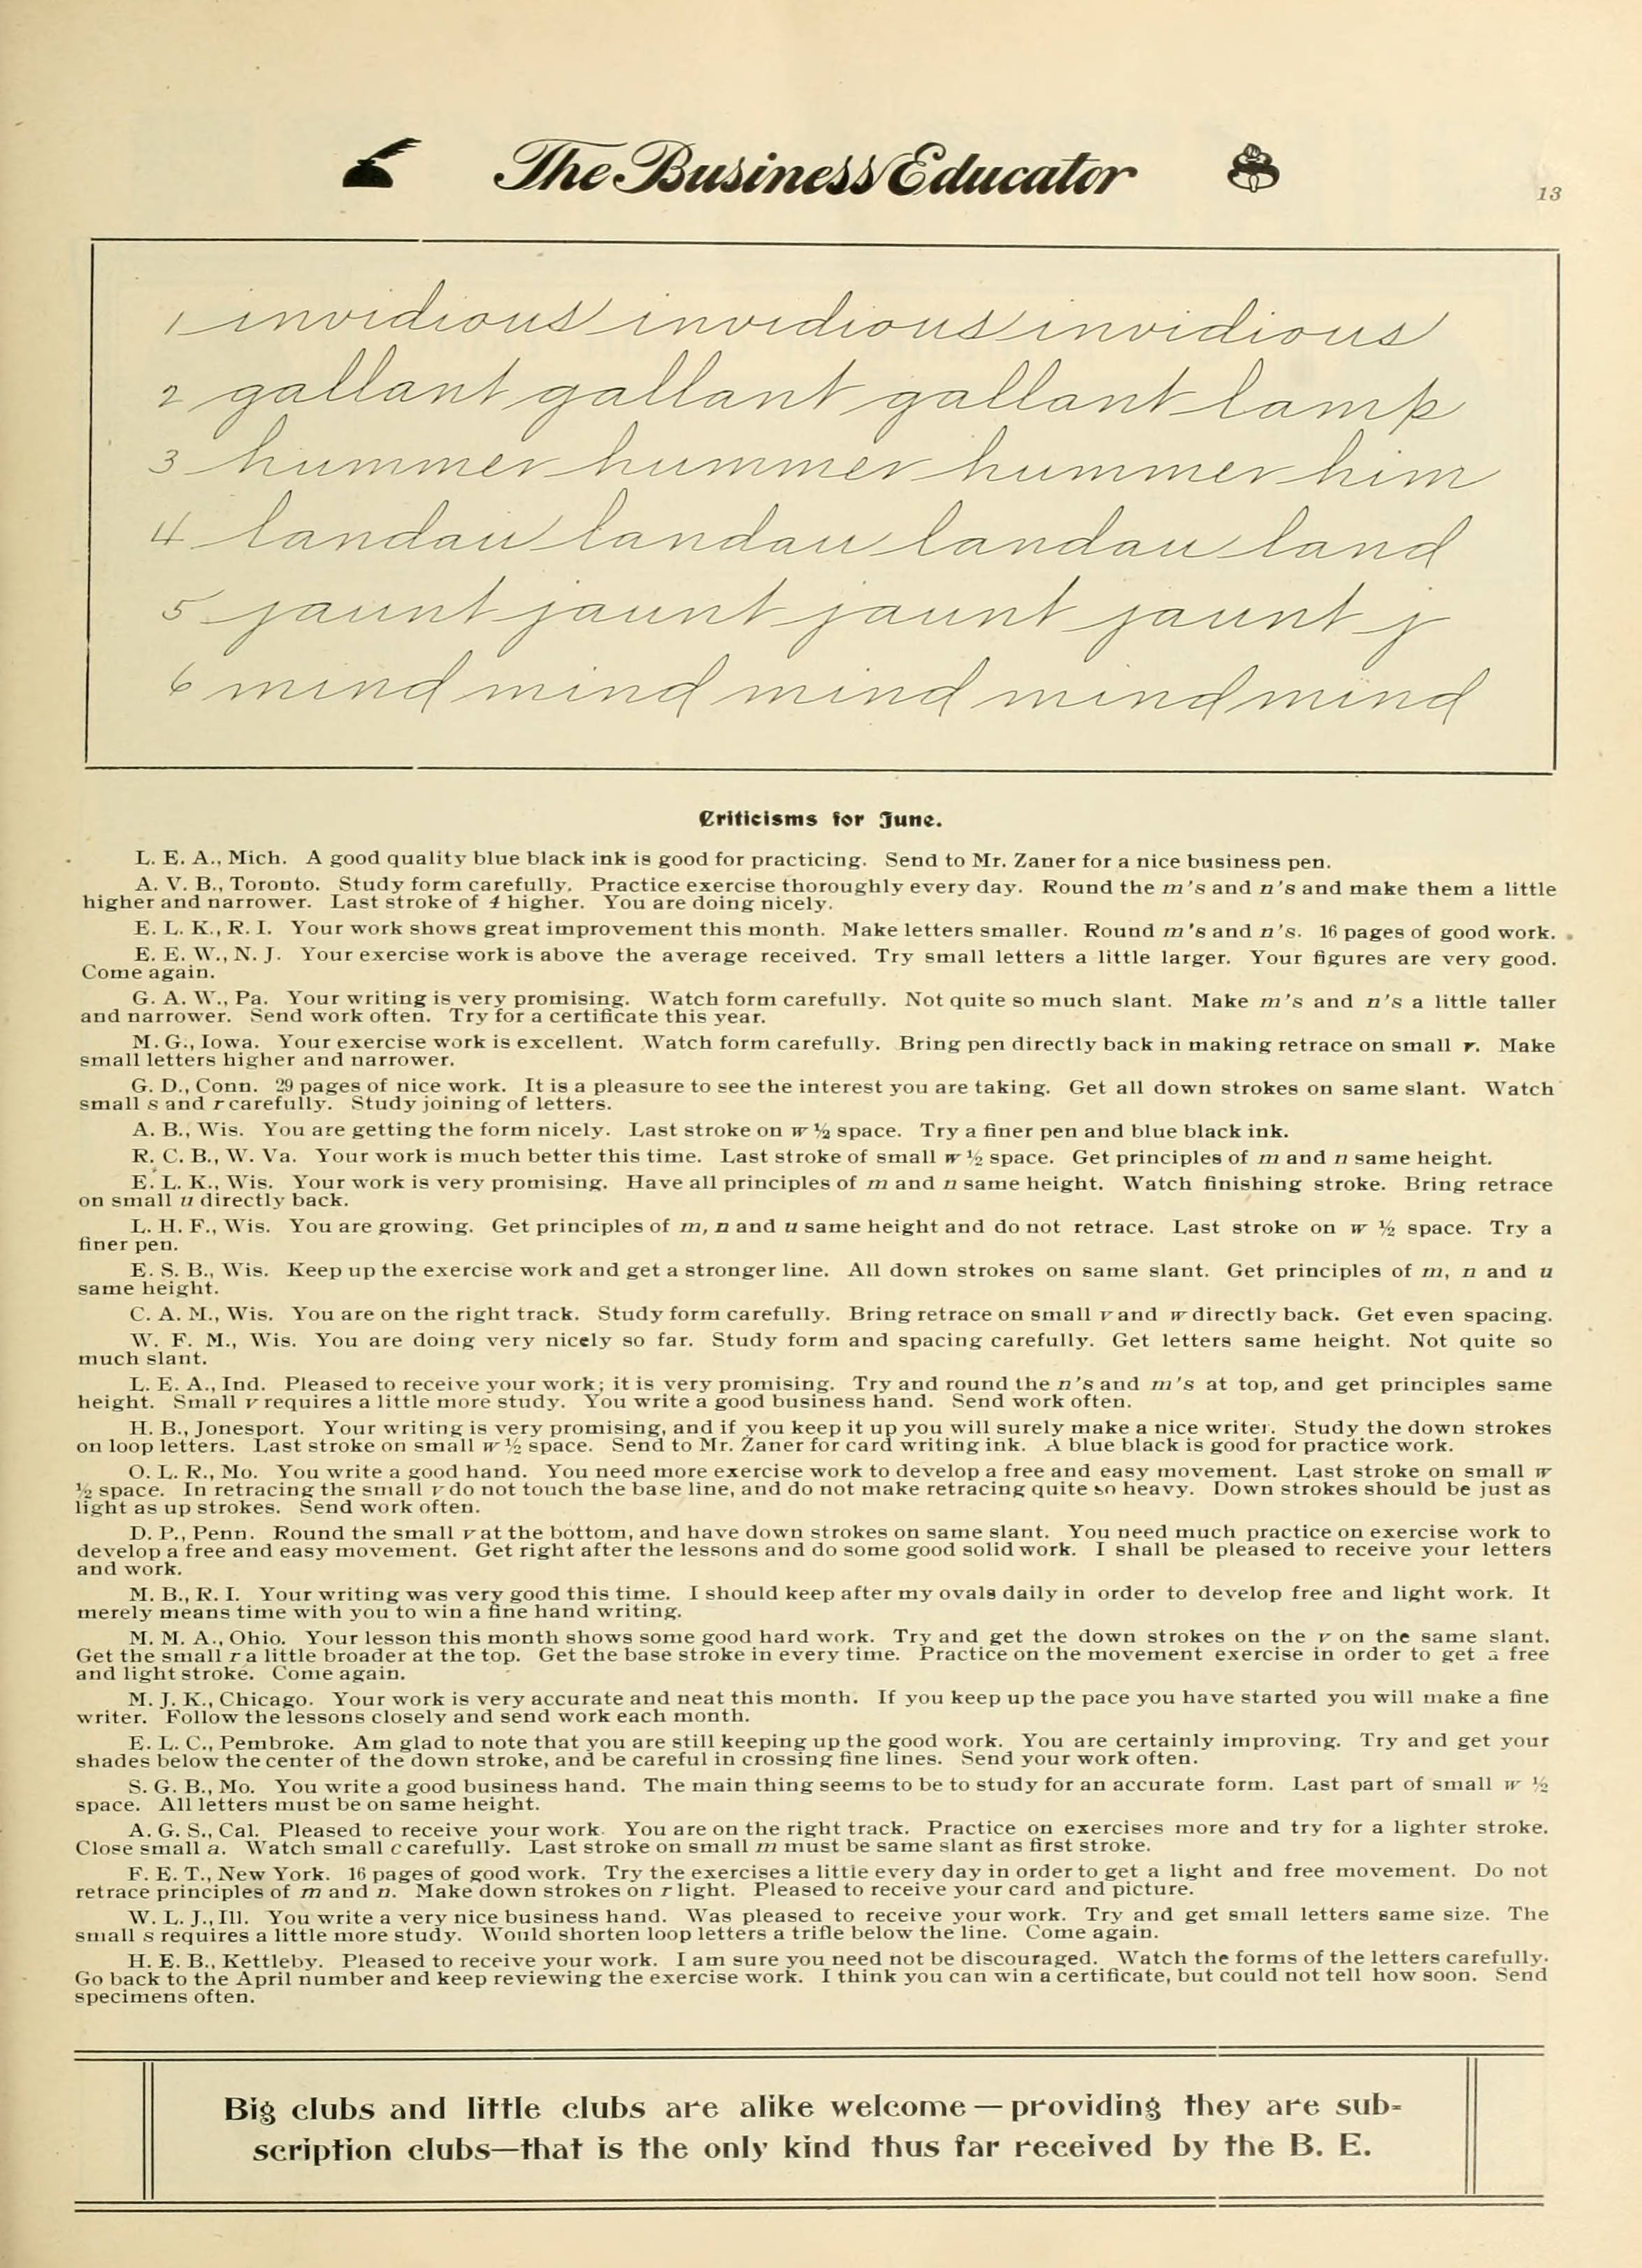 The Business Educator
13
1 invidious invidious invidious
2 gallant gallant gallant lamp
3 hummer hummer hummer him
4 landau landau landau land
5 jaunt jaunt jaunt jaunt j
6 mind mind mind mind mind
Criticisms for June.
L. E. A., Mich. A good quality blue black ink is good for practicing. Send to Mr. Zaner for a nice business pen.
A. V. B., Toronto. Study form carefully. Practice exercise thoroughly every day. Round the m's and n's and make them a little
higher and narrower. Last stroke of 4 higher. You are doing nicely.
E. L. K., R. I. Your work shows great improvement this month. Make letters smaller. Round m's and n's. 16 pages of good work.
E. E. W., N. J. Your exercise work is above the average received. Try small letters a little larger. Your figures are very good.
Come again.
G. A. W., Pa. Your writing is very promising. Watch form carefully. Not quite so much slant. Make m's and n's a little taller
and narrower. Send work often. Try for a certificate this year.
M. G., Iowa. Your exercise work is excellent. Watch form carefully. Bring pen directly back in making retrace on small r. Make
small letters higher and narrower.
G. D., Conn. 29 pages of nice work. It is a pleasure to see the interest you are taking. Get all down strokes on same slant. Watch
small s and r carefully. Study joining of letters.
A. B., Wis. You are getting the form nicely. Last stroke on w ½ space. Try a finer pen and blue black ink.
R. C. B., W. Va. Your work is much better this time. Last stroke of small w ½ space. Get principles of m and n same height.
E. L. K., Wis. Your work is very promising. Have all principles of m and n same height. Watch finishing stroke. Bring retrace
on small u directly back.
L. H. F., Wis. You are growing. Get principles of m, n and u same height and do not retrace. Last stroke on w ½ space. Try a
finer pen.
E. S. B., Wis. Keep up the exercise work and get a stronger line. All down strokes on same slant. Get principles of m, n and u
same height.
C. A. M., Wis. You are on the right track. Study form carefully. Bring retrace on small v and w directly back. Get even spacing.
W. F. M., Wis. You are doing very nicely so far. Study form and spacing carefully. Get letters same height. Not quite so
much slant.
L. E. A., Ind. Pleased to receive your work; it is very promising. Try and round the n's and m's at top, and get principles same
height. Small v requires a little more study. You write a good business hand. Send work often.
H. B., Jonesport. Your writing is very promising, and if you keep it up you will surely make a nice writer. Study the down strokes
on loop letters. Last stroke on small w ½ space. Send to Mr. Zaner for card writing ink. A blue black is good for practice work.
O. L. R., Mo. You write a good hand. You need more exercise work to develop a free and easy movement. Last stroke on small w
½ space. In retracing the small v do not touch the base line, and do not make retracing quite so heavy. Down strokes should be just as
light as up strokes. Send work often.
D. P., Penn. Round the small v at the bottom, and have down strokes on same slant. You need much practice on exercise work to
develop a free and easy movement. Get right after the lessons and do some good solid work. I shall be pleased to receive your letters
and work.
M. B., R. I. Your writing was very good this time. I should keep after my ovals daily in order to develop free and light work. It
merely means time with you to win a fine hand writing.
M. M. A., Ohio. Your lesson this month shows some good hard work. Try and get the down strokes on the v on the same slant.
Get the small r a little broader at the top. Get the base stroke in every time. Practice on the movement exercise in order to get a free
and light stroke. Come again.
M. J. K., Chicago. Your work is very accurate and neat this month. If you keep up the pace you have started you will make a fine
writer. Follow the lessons closely and send work each month.
E. L. C., Pembroke. Am glad to note that you are still keeping up the good work. You are certainly improving. Try and get your
shades below the center of the down stroke, and be careful in crossing fine lines. Send your work often.
S. G. B., Mo. You write a good business hand. The main thing seems to be to study for an accurate form. Last part of small w ½
space. All letters must be on same height.
A. G. S., Cal. Pleased to receive your work. You are on the right track. Practice on exercises more and try for a lighter stroke.
Close small a. Watch small c carefully. Last stroke on small m must be same slant as first stroke.
F. E. T., New York. 16 pages of good work. Try the exercises a little every day in order to get a light and free movement. Do not
retrace principles of m and n. Make down strokes on r light. Pleased to receive your card and picture.
W. L. J., Ill. You write a very nice business hand. Was pleased to receive your work. Try and get small letters same size. The
small s requires a little more study. Would shorten loop letters a trifle below the line. Come again.
H. E. B., Kettleby. Pleased to receive your work. I am sure you need not be discouraged. Watch the forms of the letters carefully.
Go back to the April number and keep reviewing the exercise work. I think you can win a certificate, but could not tell how soon. Send
specimens often.
Big clubs and little clubs are alike welcome — providing they are sub-
scription clubs—that is the only kind thus far received by the B. E.